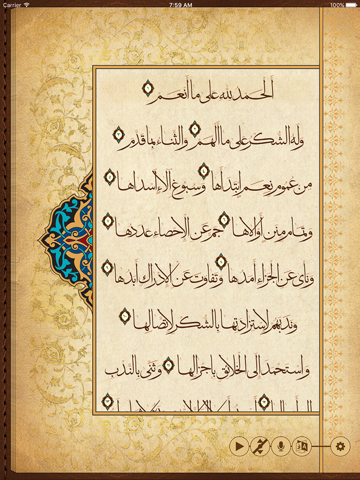 Carrier 7:59 AM 100%
الحمد لله على ما أنعم
وله الشكر على ما ألهم والثناء بما قدم
من عموم نعم ابتداها وسبوغ آلاء أسداها
وتمام منن أولاها جم عن الإحصاء عددها
ونأى عن الجزاء أمدها وتفاوت عن الإدراك أبدها
وندبهم لاستزادتها بالشكر لاتصالها
واستحمد إلى الخلائق بإجزالها وثنى بالندب